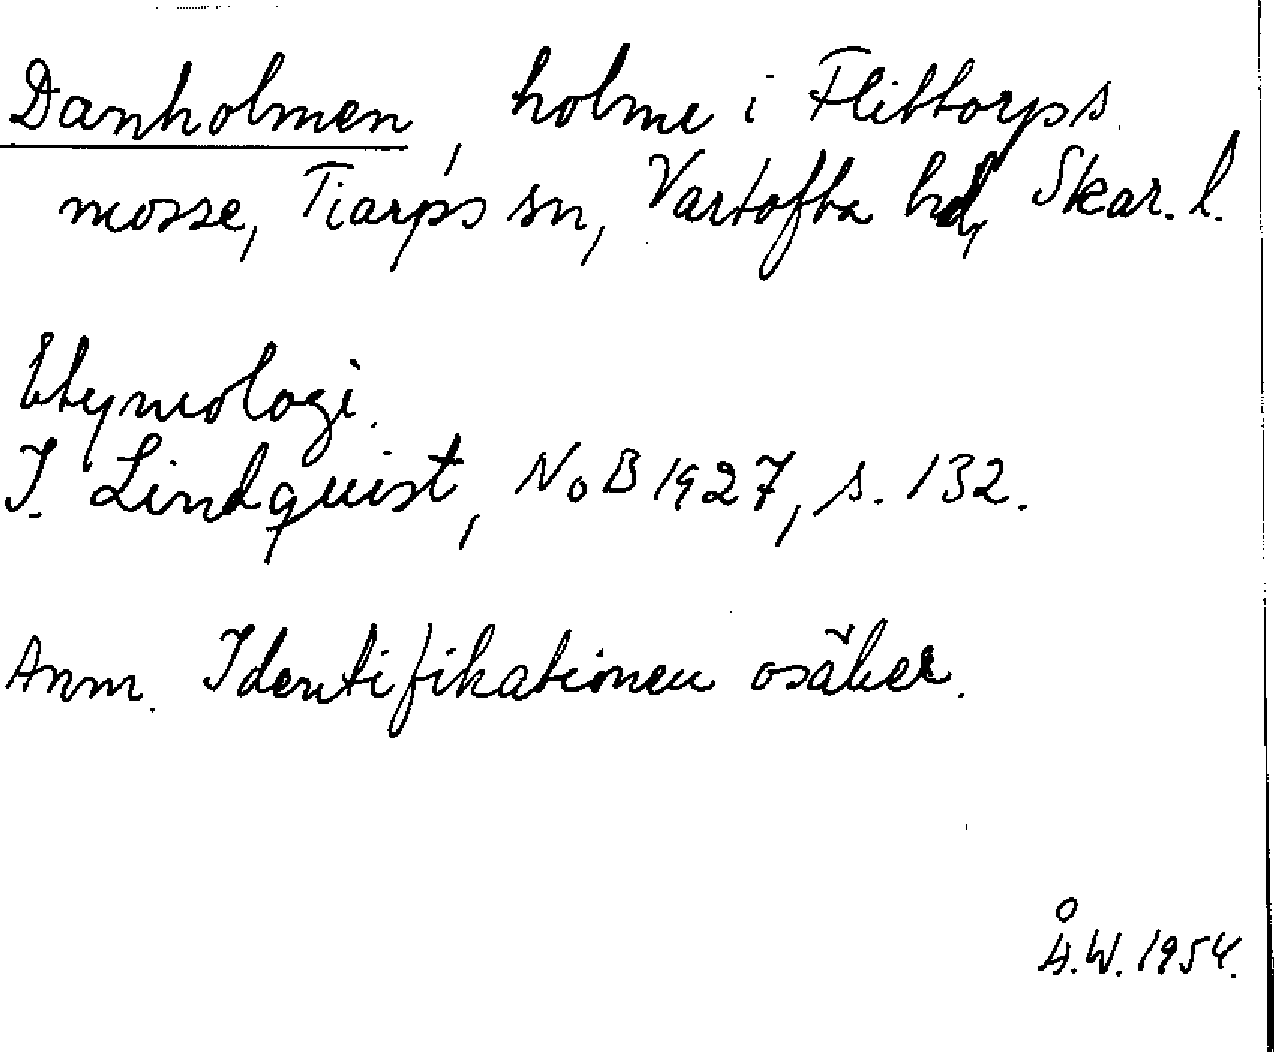 Danholmen, holme i Flittorps
mosse, Tiarps sn, Vartofta hd, Skar. l.
Etymologi.
I. Lindquist, NoB 1927, s. 132.
Anm. Identifikationen osäker.
Å.W. 1954.